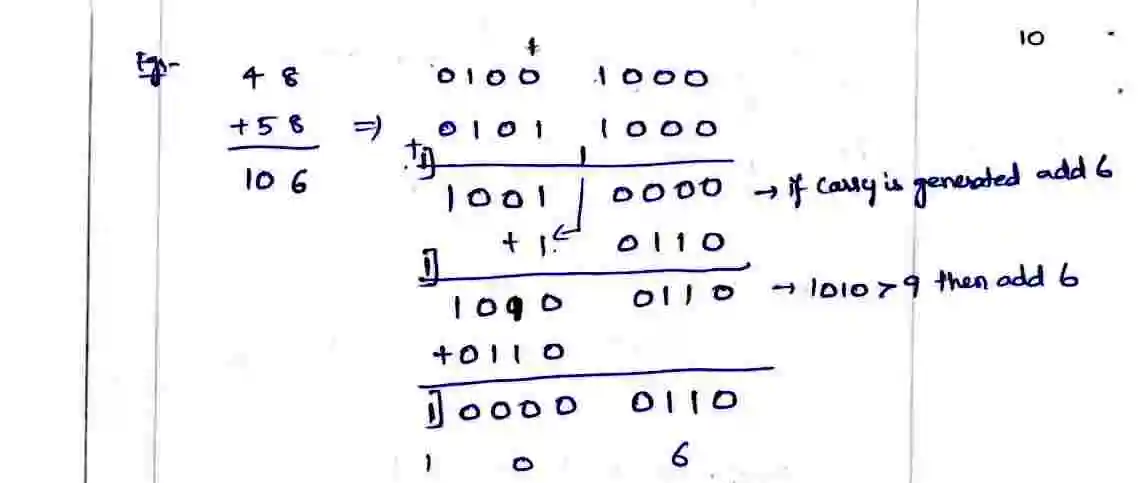 10
Eg:- 4 8 0100 1000
+58 ⇒ 0101 1000
1
10 6 1001 0000 → if carry is generated add 6
+ 1 0110
1010 0110 → 1010 > 9 then add 6
+0110
1 0000 0110
1 0 6